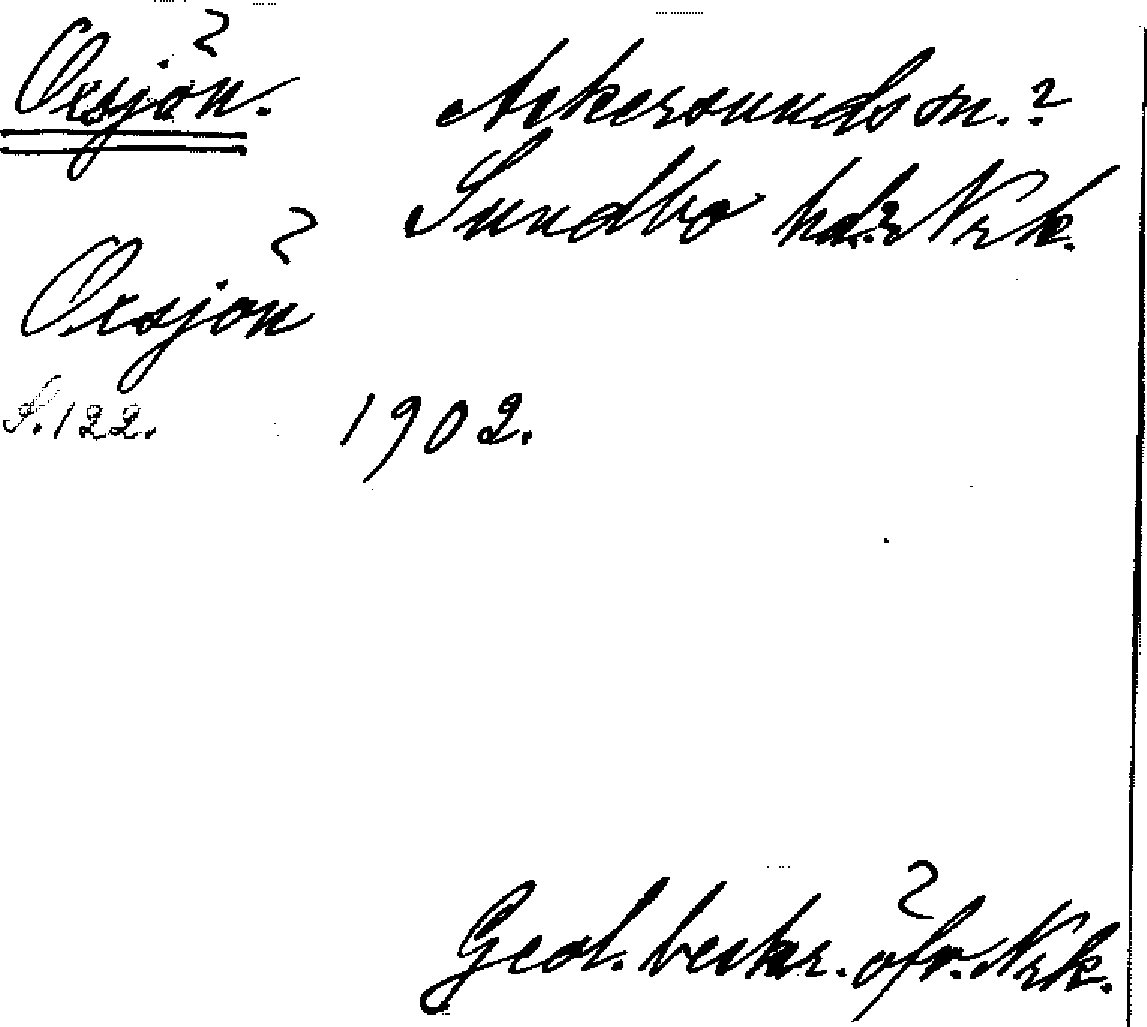 Oxsjön.
Askersunds sn.?
Sundbo hd.? Nrk.
Oxsjön
S. 122. 1902.
Geol. beskr. öfv. Nrk.